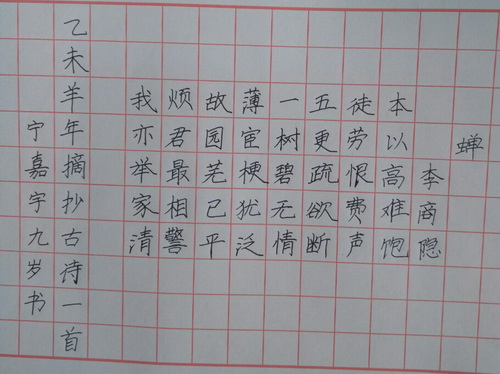 蝉
李商隐
本以高难饱
徒劳恨费声
五更疏欲断
一树碧无情
薄宦梗犹泛
故园芜已平
烦君最相警
我亦举家清
乙未羊年摘抄古诗一首
宁嘉宇九岁书